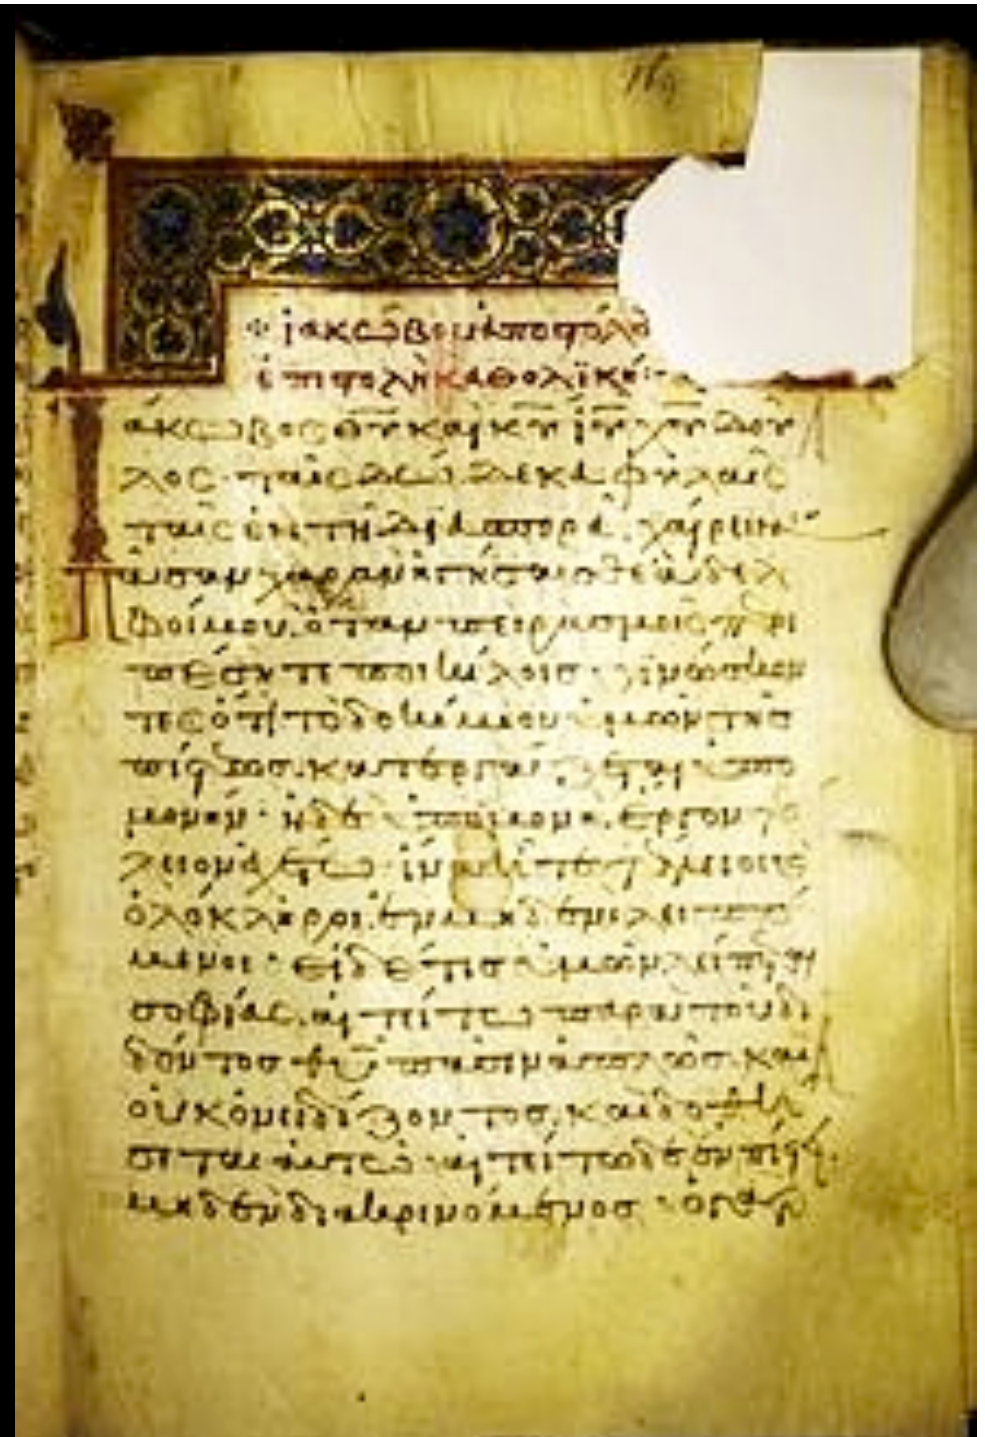 ἰακώβου ἀποστόλου
ἐπιστολὴ καθολικὴ
Ἰάκωβος θυ καὶ κυ ιυ χυ δου
λος· ταῖς δώδεκα φυλαῖς
ταῖς ἐν τῇ διασπορᾷ, χαίρειν·
πᾶσαν χαρὰν ἡγήσασθε ἀδελ
φοί μου, ὅταν πειρασμοῖς περι
πέσητε ποικίλοις· γινώσκον
τες ὅτι τὸ δοκίμιον ὑμῶν τῆς
πίστεως, κατεργάζεται ὑπο
μονήν· ἡ δὲ ὑπομονὴ, ἔργον τέ
λειον ἐχέτω· ἵνα ἦτε τέλειοι καὶ
ὁλόκληροι, ἐν μηδενὶ λειπό
μενοι· εἰ δέ τις ὑμῶν λείπεται
σοφίας, αἰτείτω παρὰ τοῦ δι
δόντος θυ πᾶσιν ἁπλῶς, καὶ
οὐκ ὀνειδίζοντος, καὶ δοθή
σεται αὐτῷ· αἰτείτω δὲ ἐν πίστει
μηδὲν διακρινόμενος· ὁ γὰρ